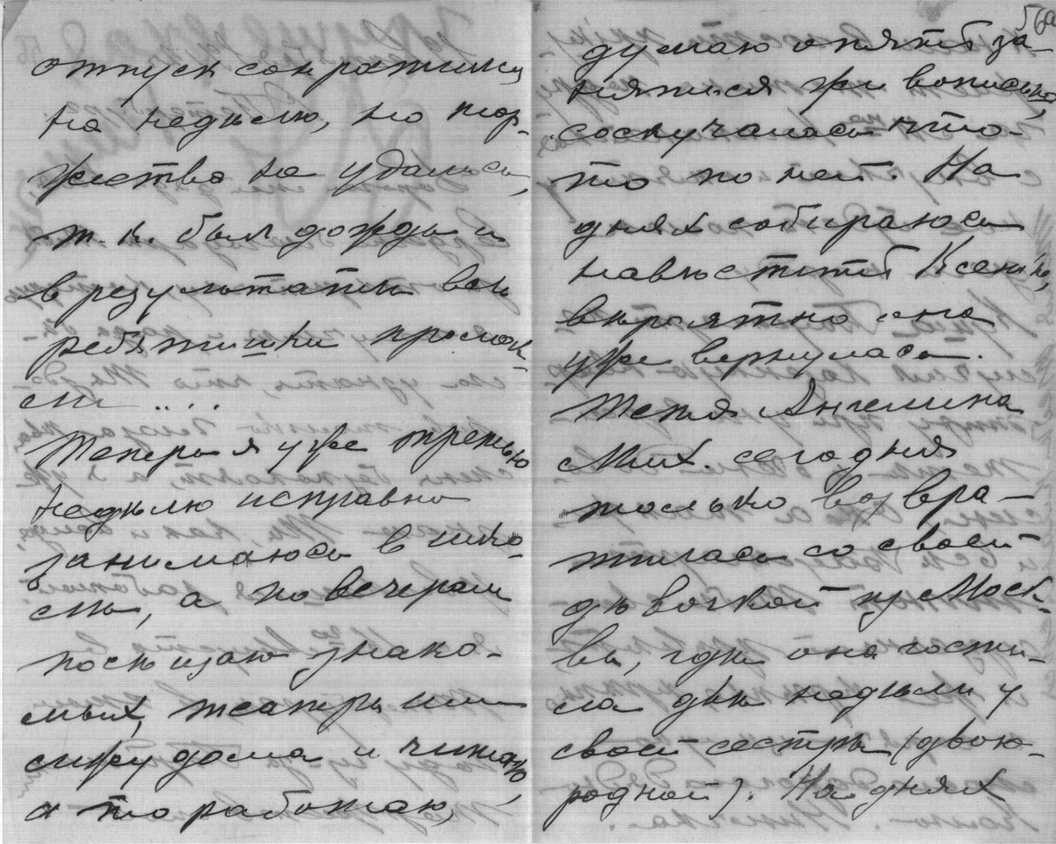 отпуск сократили
на недѣлю, но тор-
жество не удалось,
т.к. был дождь и
в результатѣ всѣ
ребятишки промок-
ли ....
Теперь я уже третью
недѣлю исправно
занимаюсь в шко-
лѣ, а по вечерам
посѣщаю знако-
мых, театры или
сижу дома и читаю,
а то работаю,
думаю опять за
няться живописью,
соскучилась что-
то по ней. На
днях собираюсь
навѣстить Ксенію,
вѣроятно она
уже вернулась.
Тетя Ангелина
Мих. сегодня
только возвра-
тилась со своей
дѣвочкой из Моск-
вы, гдѣ она гости-
ла двѣ недѣли у
своей сестры (двою-
родной). На днях